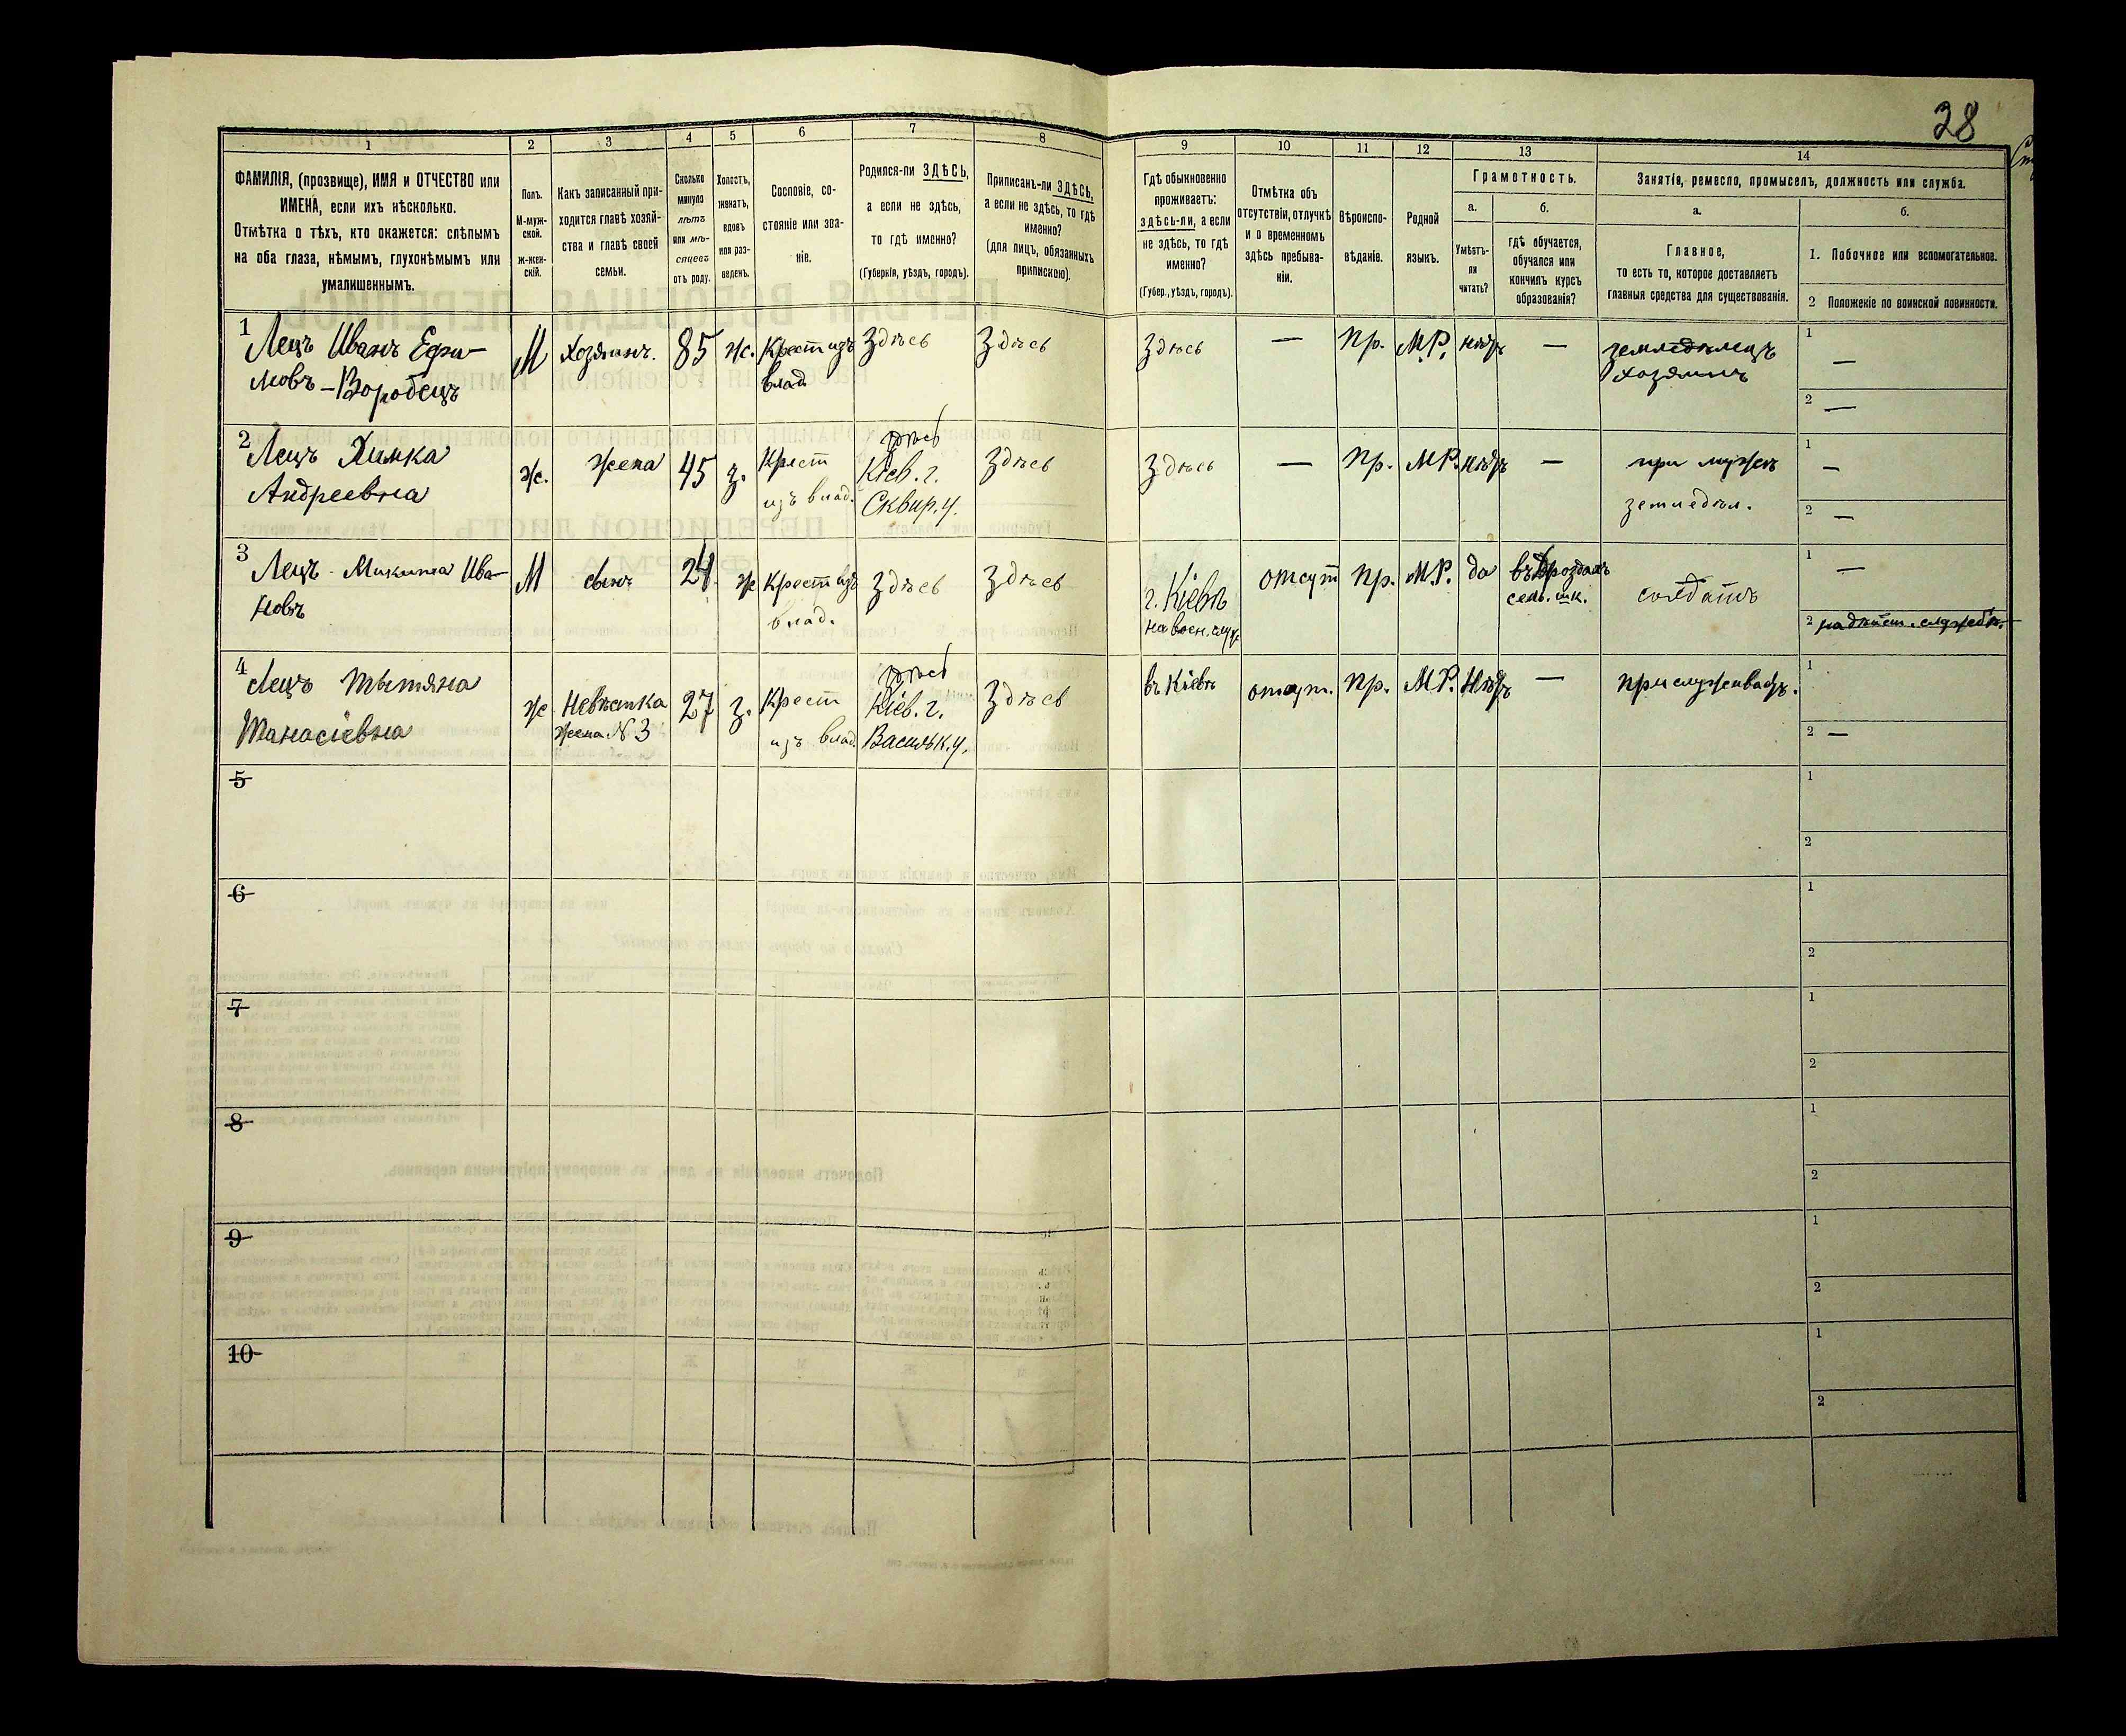 28
1
2
3
4
5
6
7
8
9
10
11
12
13
14
ФАМИЛІЯ, (прозвище), ИМЯ и ОТЧЕСТВО или
ИМЕНА, если ихъ нѣсколько.
Отмѣтка о тѣхъ, кто окажется: слѣпымъ
на оба глаза, нѣмымъ, глухонѣмымъ или
умалишеннымъ.
Полъ.
М-муж-
ской.
Ж-жен-
скій.
Какъ записанный при-
ходится главѣ хозяй-
ства и главѣ своей
семьи.
Сколько
минуло
лѣтъ
или мѣ-
сяцевъ
отъ роду.
Холостъ,
женатъ,
вдовъ
или раз-
веденъ.
Сословіе, со-
стояніе или зва-
ніе.
Родился-ли ЗДѢСЬ,
а если не здѣсь,
то гдѣ именно?
(Губернія, уѣздъ, городъ).
Приписанъ-ли ЗДѢСЬ,
а если не здѣсь, то гдѣ
именно?
(для лицъ, обязанныхъ
припискою).
Гдѣ обыкновенно
проживаетъ:
здѣсь-ли, а если
не здѣсь, то гдѣ
именно?
(Губер., уѣздъ, городъ).
Отмѣтка объ
отсутствіи, отлучкѣ
и о временномъ
здѣсь пребыва-
ніи.
Вѣроиспо-
вѣданіе.
Родной
языкъ.
Грамотность.
а.
Умѣетъ-
ли
читать?
б.
гдѣ обучается,
обучался или
кончилъ курсъ
образованія?
Занятіе, ремесло, промыселъ, должность или служба.
а.
Главное,
то есть то, которое доставляетъ
главныя средства для существованія.
б.
1. Побочное или вспомогательное.
2 Положеніе по воинской повинности.
1
Лецъ Иванъ Ефи-
мовъ – Воробецъ
М
Хозяинъ.
85
ж.
Крест изъ
влад.
Здѣсь
Здѣсь
Здѣсь
—
Пр.
М.Р.
нѣтъ
—
земледѣлецъ
хозяинъ
1 —
2 —
2
Лецъ Химка
Андреевна
ж.
жена
45
з.
Крест
изъ влад.
здѣсь
Кіев. г.
Сквир. у.
Здѣсь
Здѣсь
—
Пр.
М.Р.
нѣтъ
—
при мужѣ
земледѣл.
1 —
2 —
3
Лецъ - Микита Ива-
новъ
М
сынъ
24
ж
Крест изъ
влад.
Здѣсь
Здѣсь
г. Кіевъ
на воен. служ.
отсут
Пр.
М.Р.
да
въ Дроздахъ
сель. шк.
солдатъ
1 —
2 на дѣйст. службѣ.
4
Лецъ Тытяна
Танасіевна
ж
Невѣстка
жена N 3
27
з.
Крест
изъ влад.
здѣсь
Кіев. г.
Васильк. у.
Здѣсь
въ Кіевѣ
отсут.
Пр.
М.Р.
Нѣтъ
—
1
2 —
5
1
2
6
1
2
7
1
2
8
1
2
9
1
2
10
1
2